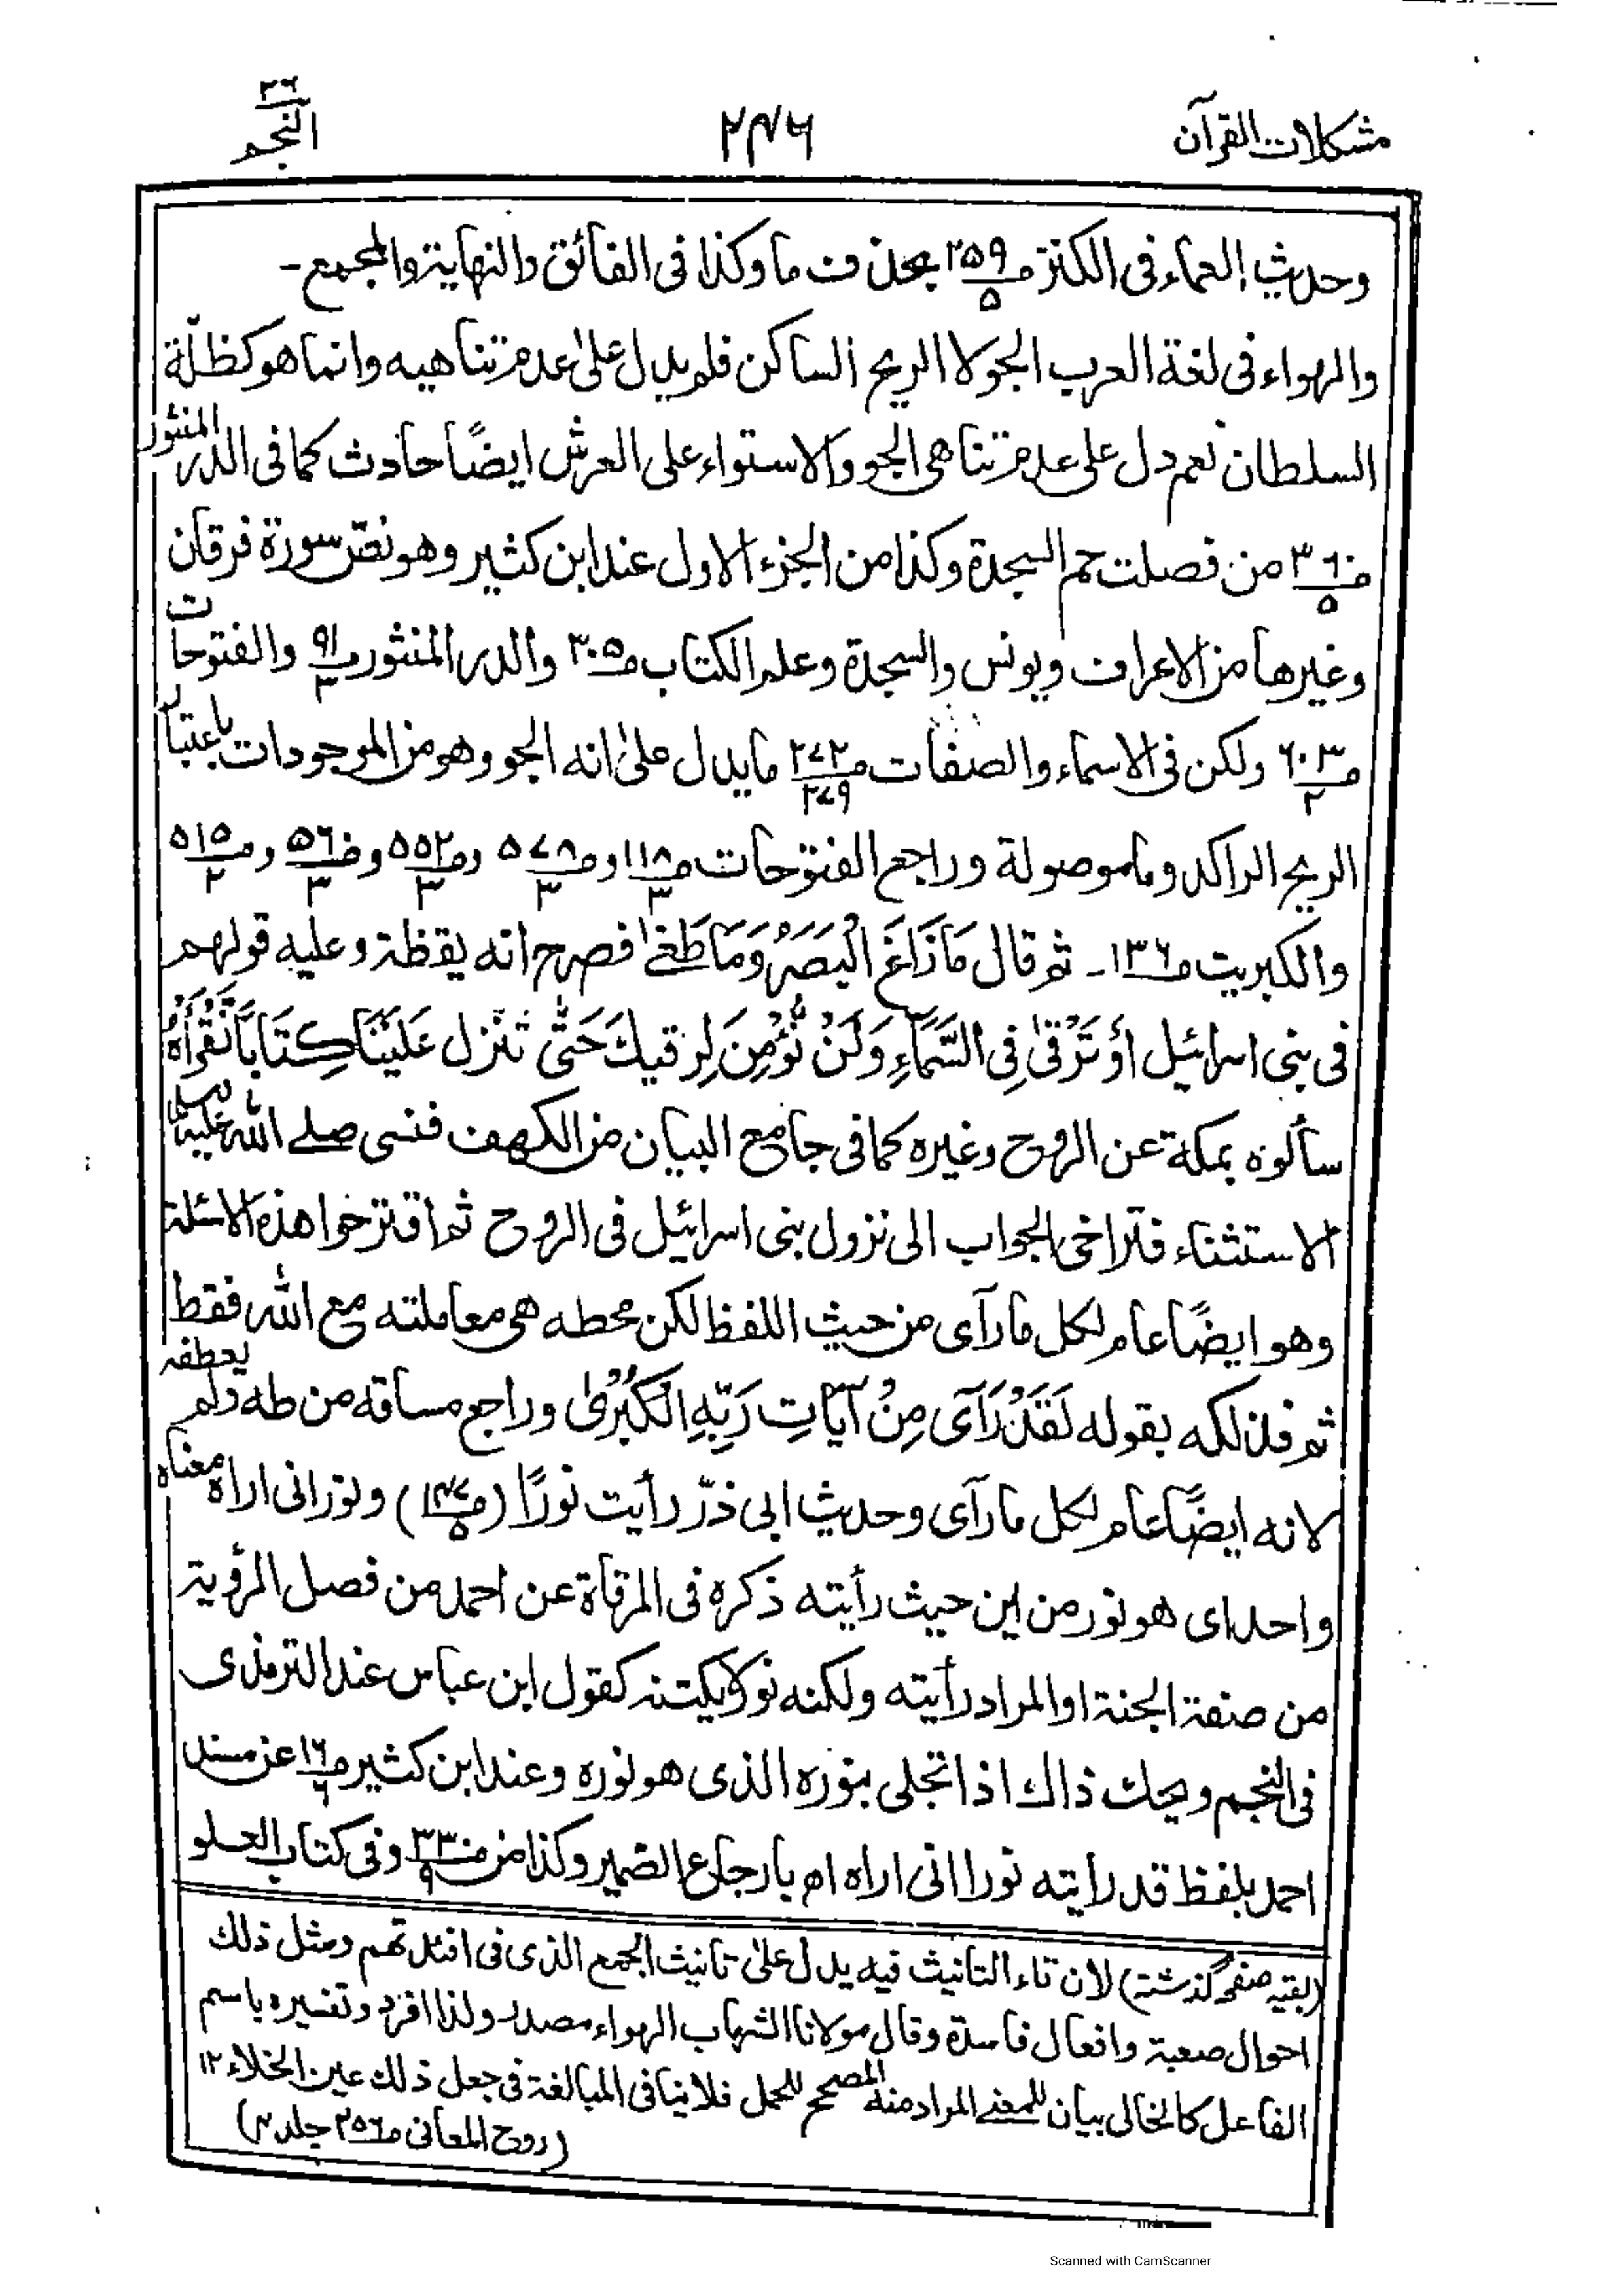 مشكلات القرآن
٢٤٦
٢٦
النجم
وحديث العماء فى الكنز صـ٢٥٩/٥ بحذف ما وكذا فى الفائق والنهاية والمجمع-
والهواء فى لغة العرب الجو لا الريح الساكن فلم يدل على عدم تناهيه وانما هو كظلّة
السلطان نعم دل على عدم تناهى الجو والاستواء على العرش ايضًا حادث كما فى الدر المنثور
صـ٣٦٠/٥ من فصلت حم السجدة وكذا من الجزء الاول عند ابن كثير وهو نصّ سورة فرقان
وغيرها من الاعراف ويونس والسجدة وعلم الكتاب صـ٣٠٥ والدر المنثور صـ٩١/٣ والفتوحات
صـ٦٠٣/٢ ولكن فى الاسماء والصفات صـ٢٧٢/٢٧٩ ما يدل على انه الجو وهو من الموجودات باعتبار
الريح الراكد وما موصولة وراجع الفتوحات صـ١١٨/٣ وصـ٥٧٨/٣ وصـ٥٥٢/٣ وصـ٥٦/٣ وصـ٥١٥/٢
والكبريت صـ١٣٦ـ ثم قال مَا زَاغَ الْبَصَرُ وَمَا طَغٰى فصرح انه يقظة وعليه قولهم
فى بنى اسرائيل أَوْ تَرْقٰى فِى السَّمَآءِ وَلَنْ نُّؤْمِنَ لِرُقيكَ حَتّٰى تُنَزل عَلَيْنَا كِتَابًا نَّقْرَأُهُ
سألوه بمكة عن الروح وغيره كما فى جامع البيان من الكهف فنسى صلى الله عليه وسلم
الاستثناء فتراخى الجواب الى نزول بنى اسرائيل فى الروح ثم اقترحوا هذه الاسئلة
وهو ايضًا عام لكل ما رآى من حيث اللفظ لكن محطه هى معاملته مع الله فقط
ثم فذلكه بقوله لَقَدْ رَآى مِنْ آيَاتِ رَبِّهِ الْكُبْرٰى وراجع مساقه من طه ولم يعطفه
لانه ايضًا عام لكل ما رآى وحديث ابى ذرّ رأيت نورًا (صـ١٤٧/٥) ونورانى اراه معناه
واحد اى هو نور من اين حيث رأيته ذكره فى المرقاة عن احمد من فصل الرؤية
من صفة الجنة او المراد رأيته ولكنه نور لا يكتنه كقول ابن عباس عند الترمذى
فى النجم ويحك ذاك اذا تجلى بنوره الذى هو نوره وعند ابن كثير صـ١٦/٦ عن مسند
احمد بلفظ قد رأيته نورا انى اراه اهـ بارجاع الضمير وكذا من صـ٣٣٠/٩ وفى كتاب العلو
(بقيه صفحه گذشته) لان تاء التانيث فيه يدل على تانيث الجمع الذى فى افئدتهم ومثل ذلك
احوال صعبة وافعال فاسدة وقال مولانا الشهاب الهواء مصدر ولذا افرد وتفسيره باسم
الفاعل كالخالى بيان للمعنى المراد منه المصحح للحمل فلا ينافى المبالغة فى جعل ذلك عين الخلاء ١٢
(روح المعانى صـ٢٥٦ جلد ٤)
Scanned with CamScanner